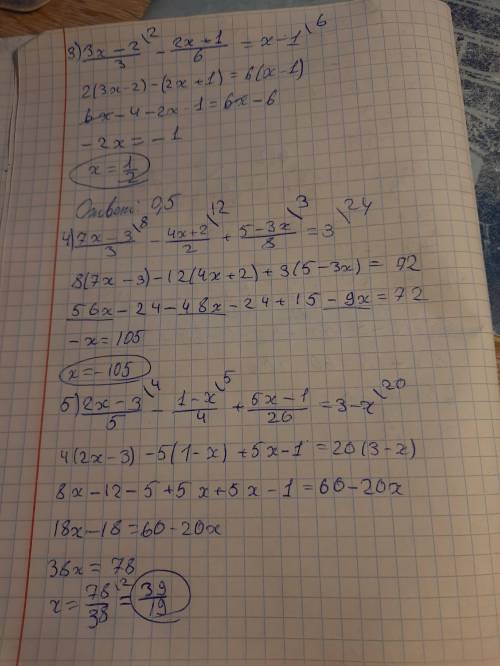 3) (3x-2)/3 \2 - (2x+1)/6 = x-1 \6
2(3x-2)-(2x+1)=6(x-1)
6x-4-2x-1=6x-6
-2x=-1
x=1/2
Ответ: 0,5
4) (7x-3)/3 \8 - (4x+2)/2 \12 + (5-3x)/8 \3 =3 \24
8(7x-3)-12(4x+2)+3(5-3x)= 92
56x-24-48x-24+15-9x=72
-x=105
x=-105
5) (2x-3)/5 \4 - (1-x)/4 \5 + (5x-1)/20 =3-x \20
4(2x-3)-5(1-x)+5x-1=20(3-x)
8x-12-5+5x+5x-1=60-20x
18x-18=60-20x
38x=78
x= 78/38 \2 = 39/19